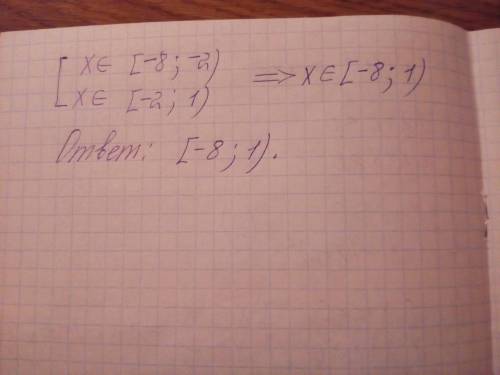 [ x ∈ [-8; -2)
x ∈ [-2; 1) ⇒ x ∈ [-8; 1)
Ответ: [-8; 1).